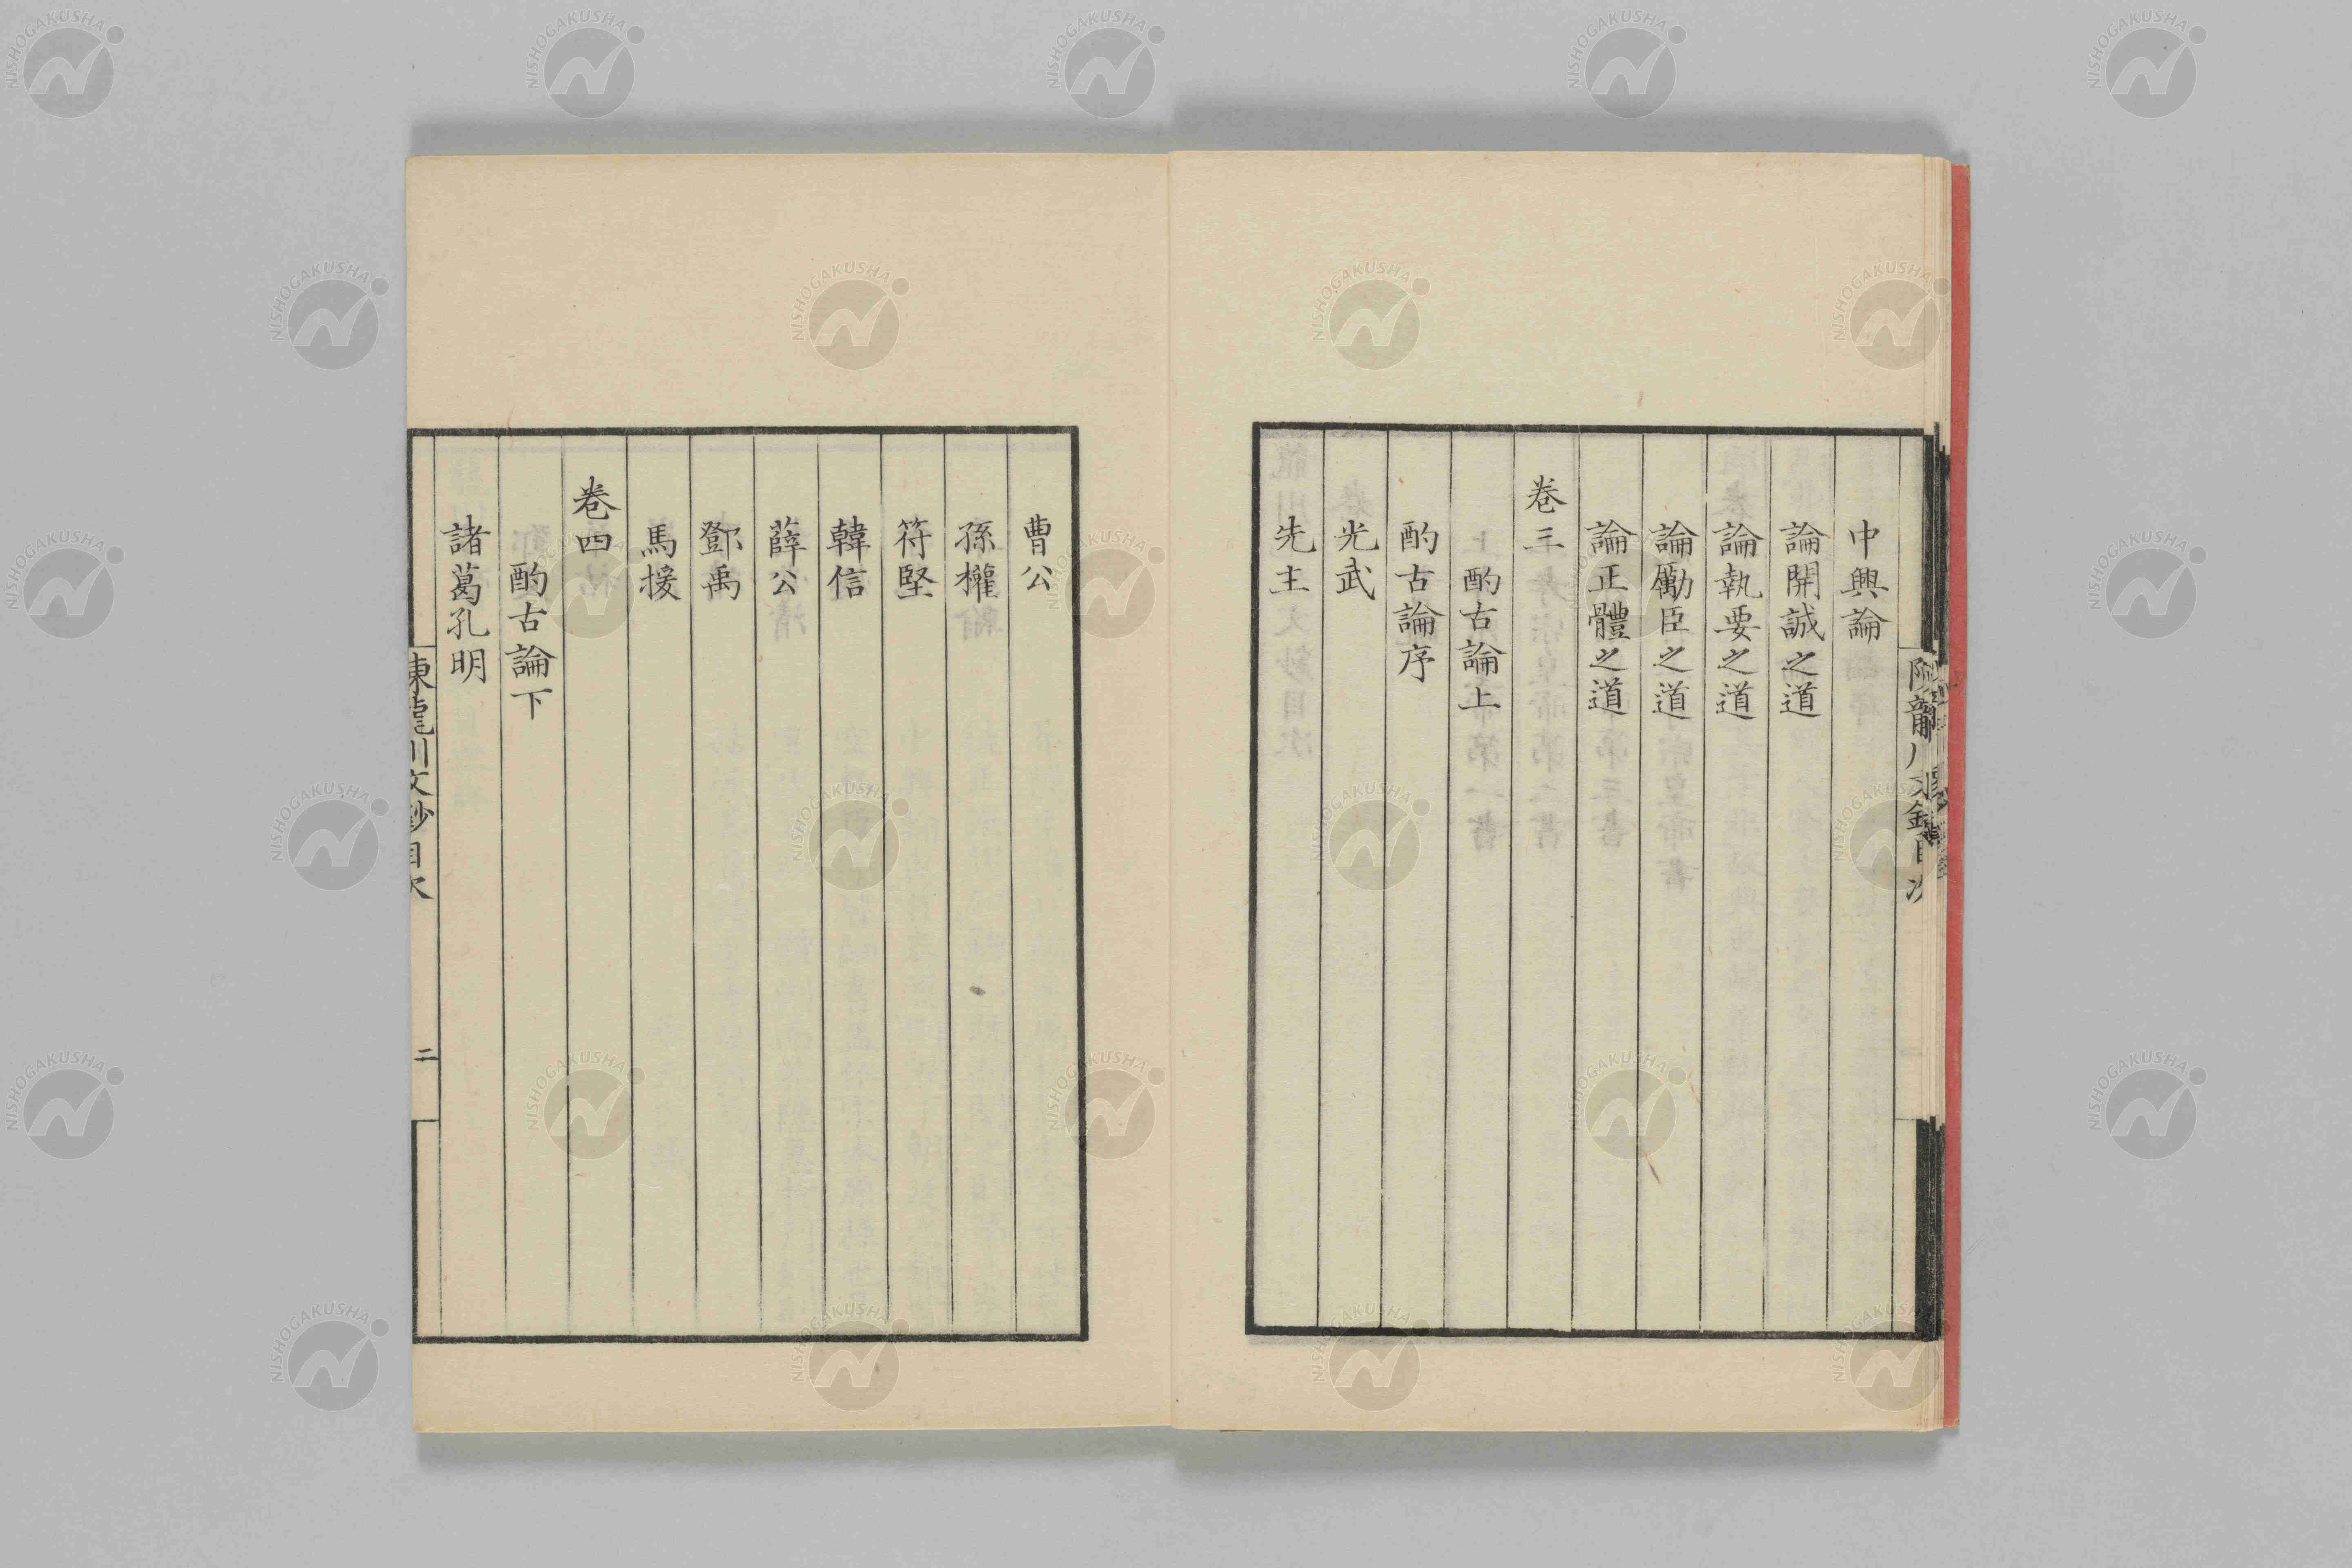 中興論
論開誠之道
論執要之道
論勵臣之道
論正體之道
卷三
酌古論上
酌古論序
光武
先主
曹公
孫權
符堅
韓信
薛公
鄧禹
馬援
卷四
酌古論下
諸葛孔明
陳龍川文鈔目次
二
NISHOGAKUSHA